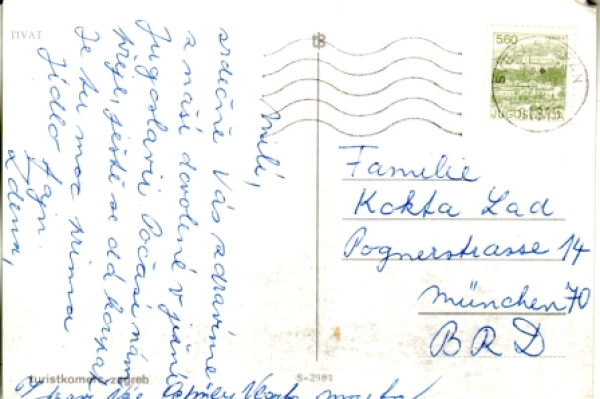 TIVAT
Milí,
srdečně Vás zdravíme
z naší dovolené v
Jugoslavii. Počasí nám
přeje, ještě se dá koupat
Je tu moc prima
Jídlo fajn.
Zdena,
turistkomerc-zagreb
S-2981
5.60
JUGOSLAVIJA
Familie
Kokta Lad
Pognerstrasse 14
München 70
BRD